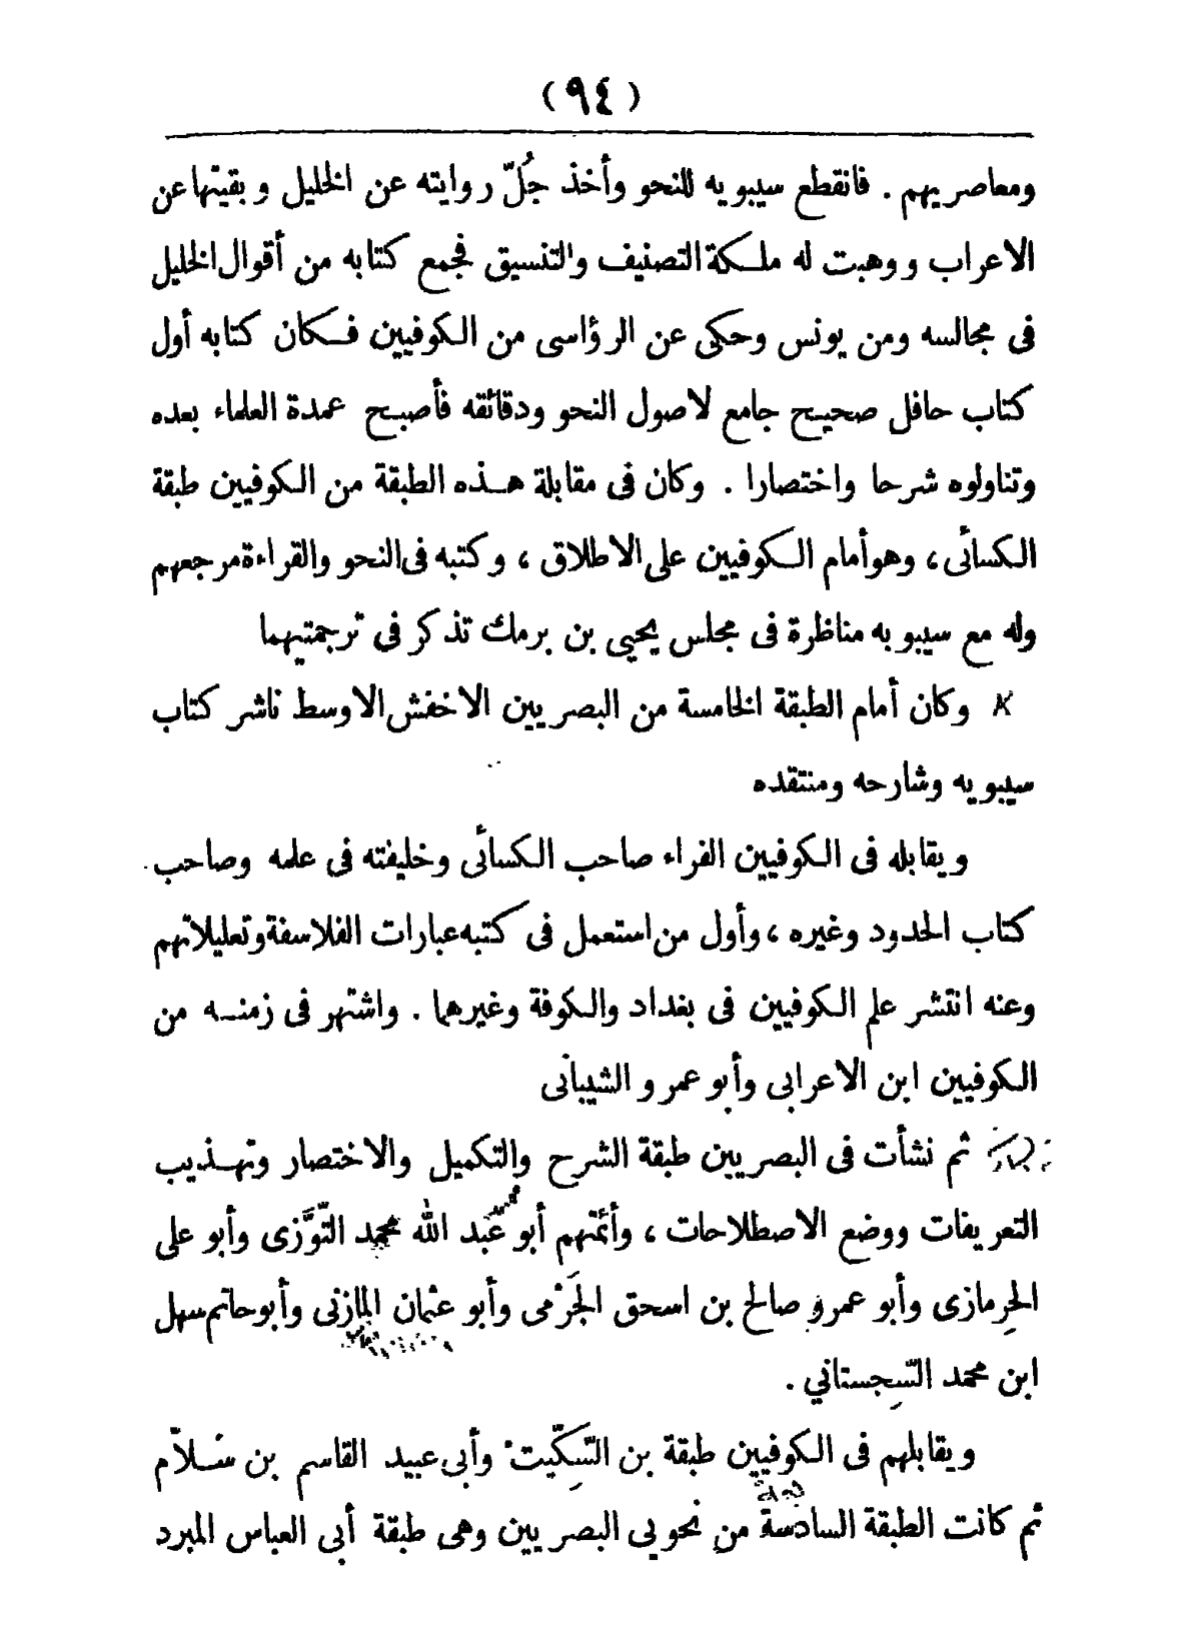 ( ٩٤ )
ومعاصريهم . فانقطع سيبويه للنحو وأخذ جُلّ روايته عن الخليل وبقيتها عن
الاعراب ووهبت له ملكة التصنيف والتنسيق فجمع كتابه من أقوال الخليل
فى مجالسه ومن يونس وحكى عن الرؤاسى من الكوفيين فكان كتابه أول
كتاب حافل صحيح جامع لاصول النحو ودقائقه فأصبح عمدة العلماء بعده
وتناولوه شرحا واختصارا . وكان فى مقابلة هذه الطبقة من الكوفيين طبقة
الكسائى ، وهو أمام الكوفيين على الاطلاق ، وكتبه فى النحو والقراءة مرجعهم
وله مع سيبويه مناظرة فى مجلس يحيى بن برمك تذكر فى ترجمتيهما
وكان أمام الطبقة الخامسة من البصريين الاخفش الاوسط ناشر كتاب
سيبويه وشارحه ومنتقده
ويقابله فى الكوفيين الفراء صاحب الكسائى وخليفته فى علمه وصاحب
كتاب الحدود وغيره ، وأول من استعمل فى كتبه عبارات الفلاسفة وتعليلاتهم
وعنه انتشر علم الكوفيين فى بغداد والكوفة وغيرهما . واشتهر فى زمنه من
الكوفيين ابن الاعرابى وأبو عمرو الشيبانى
ثم نشأت فى البصريين طبقة الشرح والتكميل والاختصار وتهذيب
التعريفات ووضع الاصطلاحات ، وأئمتهم أبو عبد الله محمد التّوَّزى وأبو على
الحِرمازى وأبو عمرو صالح بن اسحق الجَرْمى وأبو عثمان المازنى وأبو حاتم سهل
ابن محمد السِّجستاني .
ويقابلهم فى الكوفيين طبقة بن السِّكّيت وأبى عبيد القاسم بن سَلاّم
ثم كانت الطبقة السادسة من نحويى البصريين وهى طبقة أبى العباس المبرد